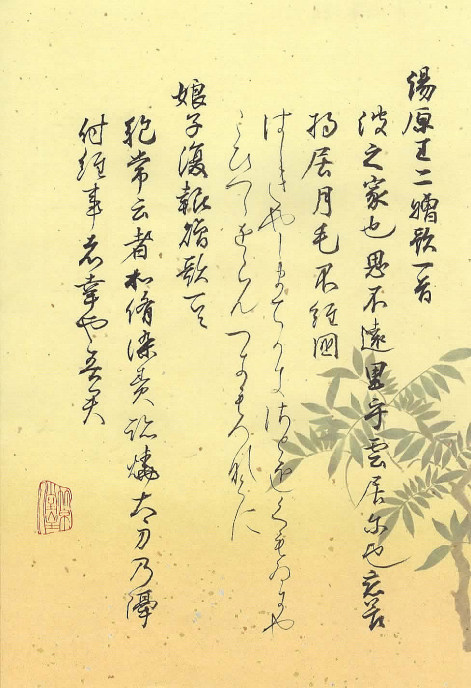 湯原王亦贈歌一首
波之家也思不遠里乎雲居尓也戀管
将居月毛不経國
はしきやしまちかきさとをくもゐにや
こひつゝをらんつきもへなくに
娘子復報贈歌一首
絶常云者和備染責跡焼大刀乃隔
付経事者幸也吾君